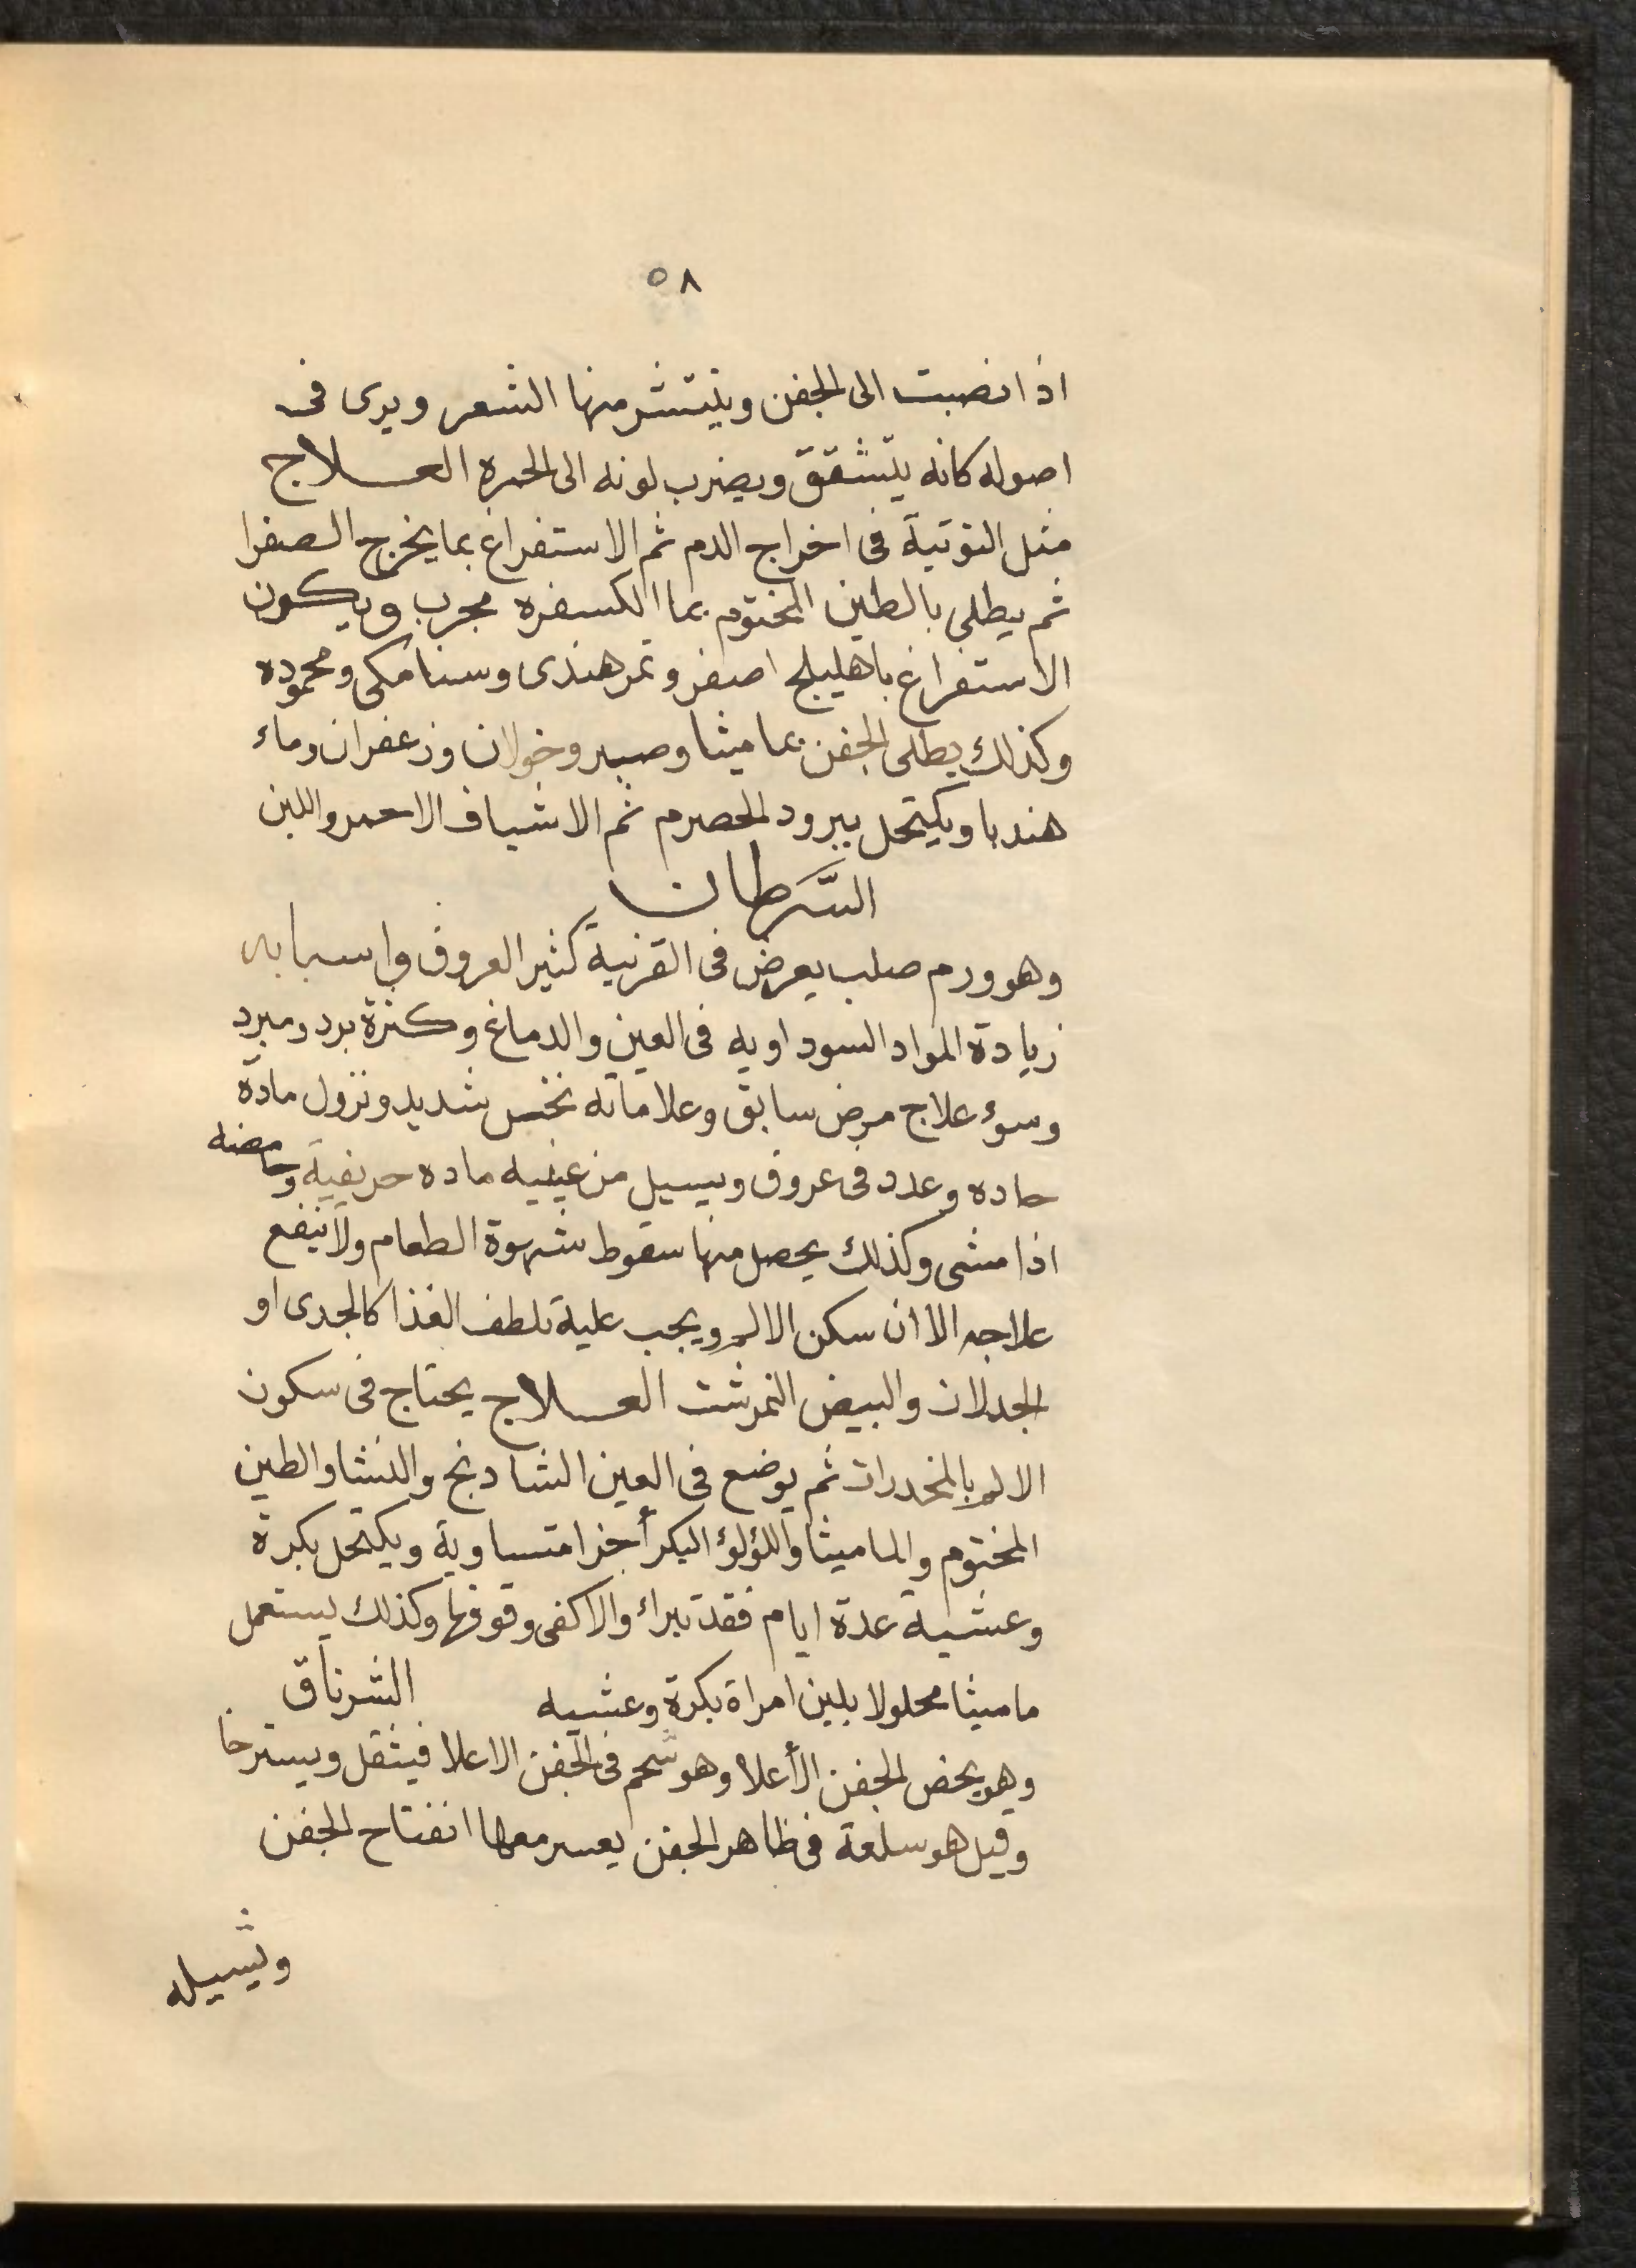 ٥٨
اذا نصبت الى الجفن وينتشر منها الشعر ويرى فى
اصوله كانه يتشقق ويضرب لونه الى الحمره العـــلاج
مثل التوتية فى اخراج الدم ثم الاستفراغ بما يخرج الصفرا
ثم يطلى بالطين المختوم بما الكسفره مجرب ويكون
الاستفراغ باهليلج اصفر وتمرهندى وسنامكى ومحموده
وكذلك يطلى الجفن بماميثا وصبر وخولان وزعفران وماء
هندبا ويكتحل ببرود الحصرم ثم الاشياف الاحمر واللبن
السَّرَطان
وهو ورم صلب يعرض فى القرنية كثير العروق واسبابه
زيادة المواد السوداويه فى العين والدماغ وكثرة برد ومبرد
وسوء علاج مرض سابق وعلاماته نخس شديد ونزول مادة
حاده وعدد فى عروق ويسيل من عينيه ماده حريفية وحامضه
اذا مشى وكذلك يحصل منها سقوط شهوة الطعام ولا ينفع
علاجه الا ان سكن الالم ويجب علية تلطف الغذا كالجدى او
الجدلان والبيض النمرشت العـــلاج يحتاج فى سكون
الالم بالمخدرات ثم يوضع فى العين الشادنج والنشا والطين
المختوم والماميثا واللؤلؤ البكر أجزا متساوية ويكتحل بكرة
وعشية عدة ايام فقد تبراء والا كفى وقوفها وكذلك يستعمل
ماميثا محلولا بلبن امراة بكرة وعشيه الشرناق
وهو يخص الجفن الأعلا وهو شحم فى الجفن الاعلا فيثقل ويسترخا
وقيل هو سلعة فى ظاهر الجفن يعسر معها انفتاح الجفن